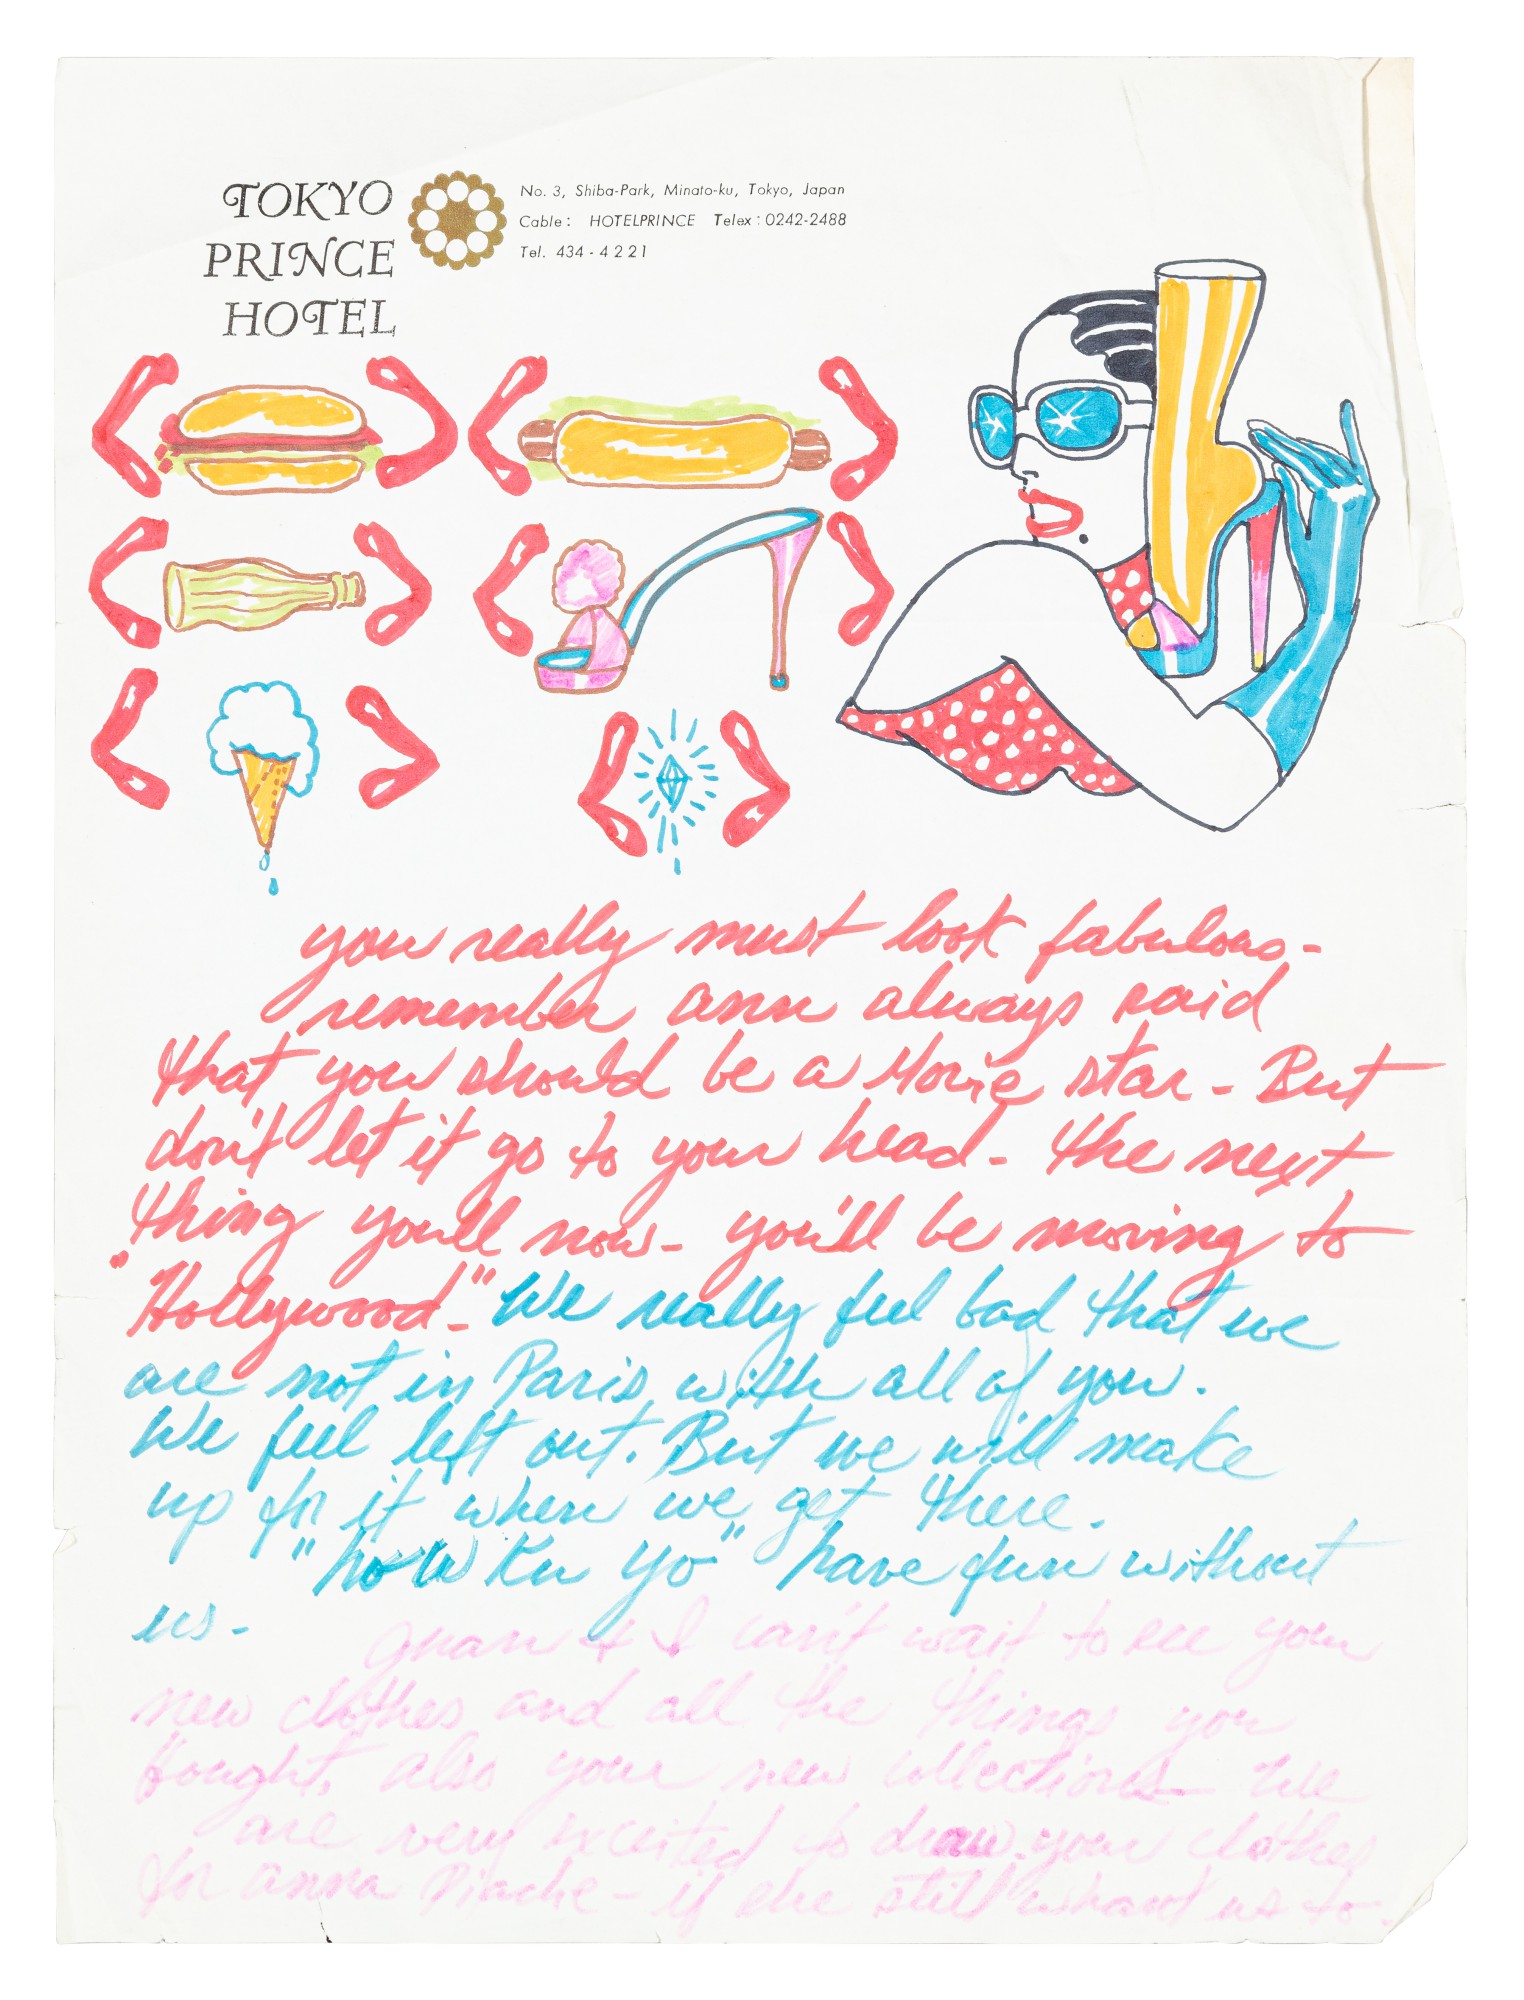 TOKYO
PRINCE
HOTEL
No. 3, Shiba-Park, Minato-ku, Tokyo, Japan
Cable: HOTELPRINCE Telex: 0242-2488
Tel. 434-4221
you really must look fabulous-
remember ann always said
that you should be a Movie star - But
don't let it go to your head - the next
thing you'll now - you'll be moving to
"Hollywood-" We really feel bad that we
are not in Paris with all of you.
We feel left out. But we will make
up for it when we get there.
"how Ku yo" have fun without
us -
Juan & I can't wait to see your
new clothes and all the things you
bought, also your new collections - We
are very excited to draw your clothes
for anna Piache - if she still whant us to.